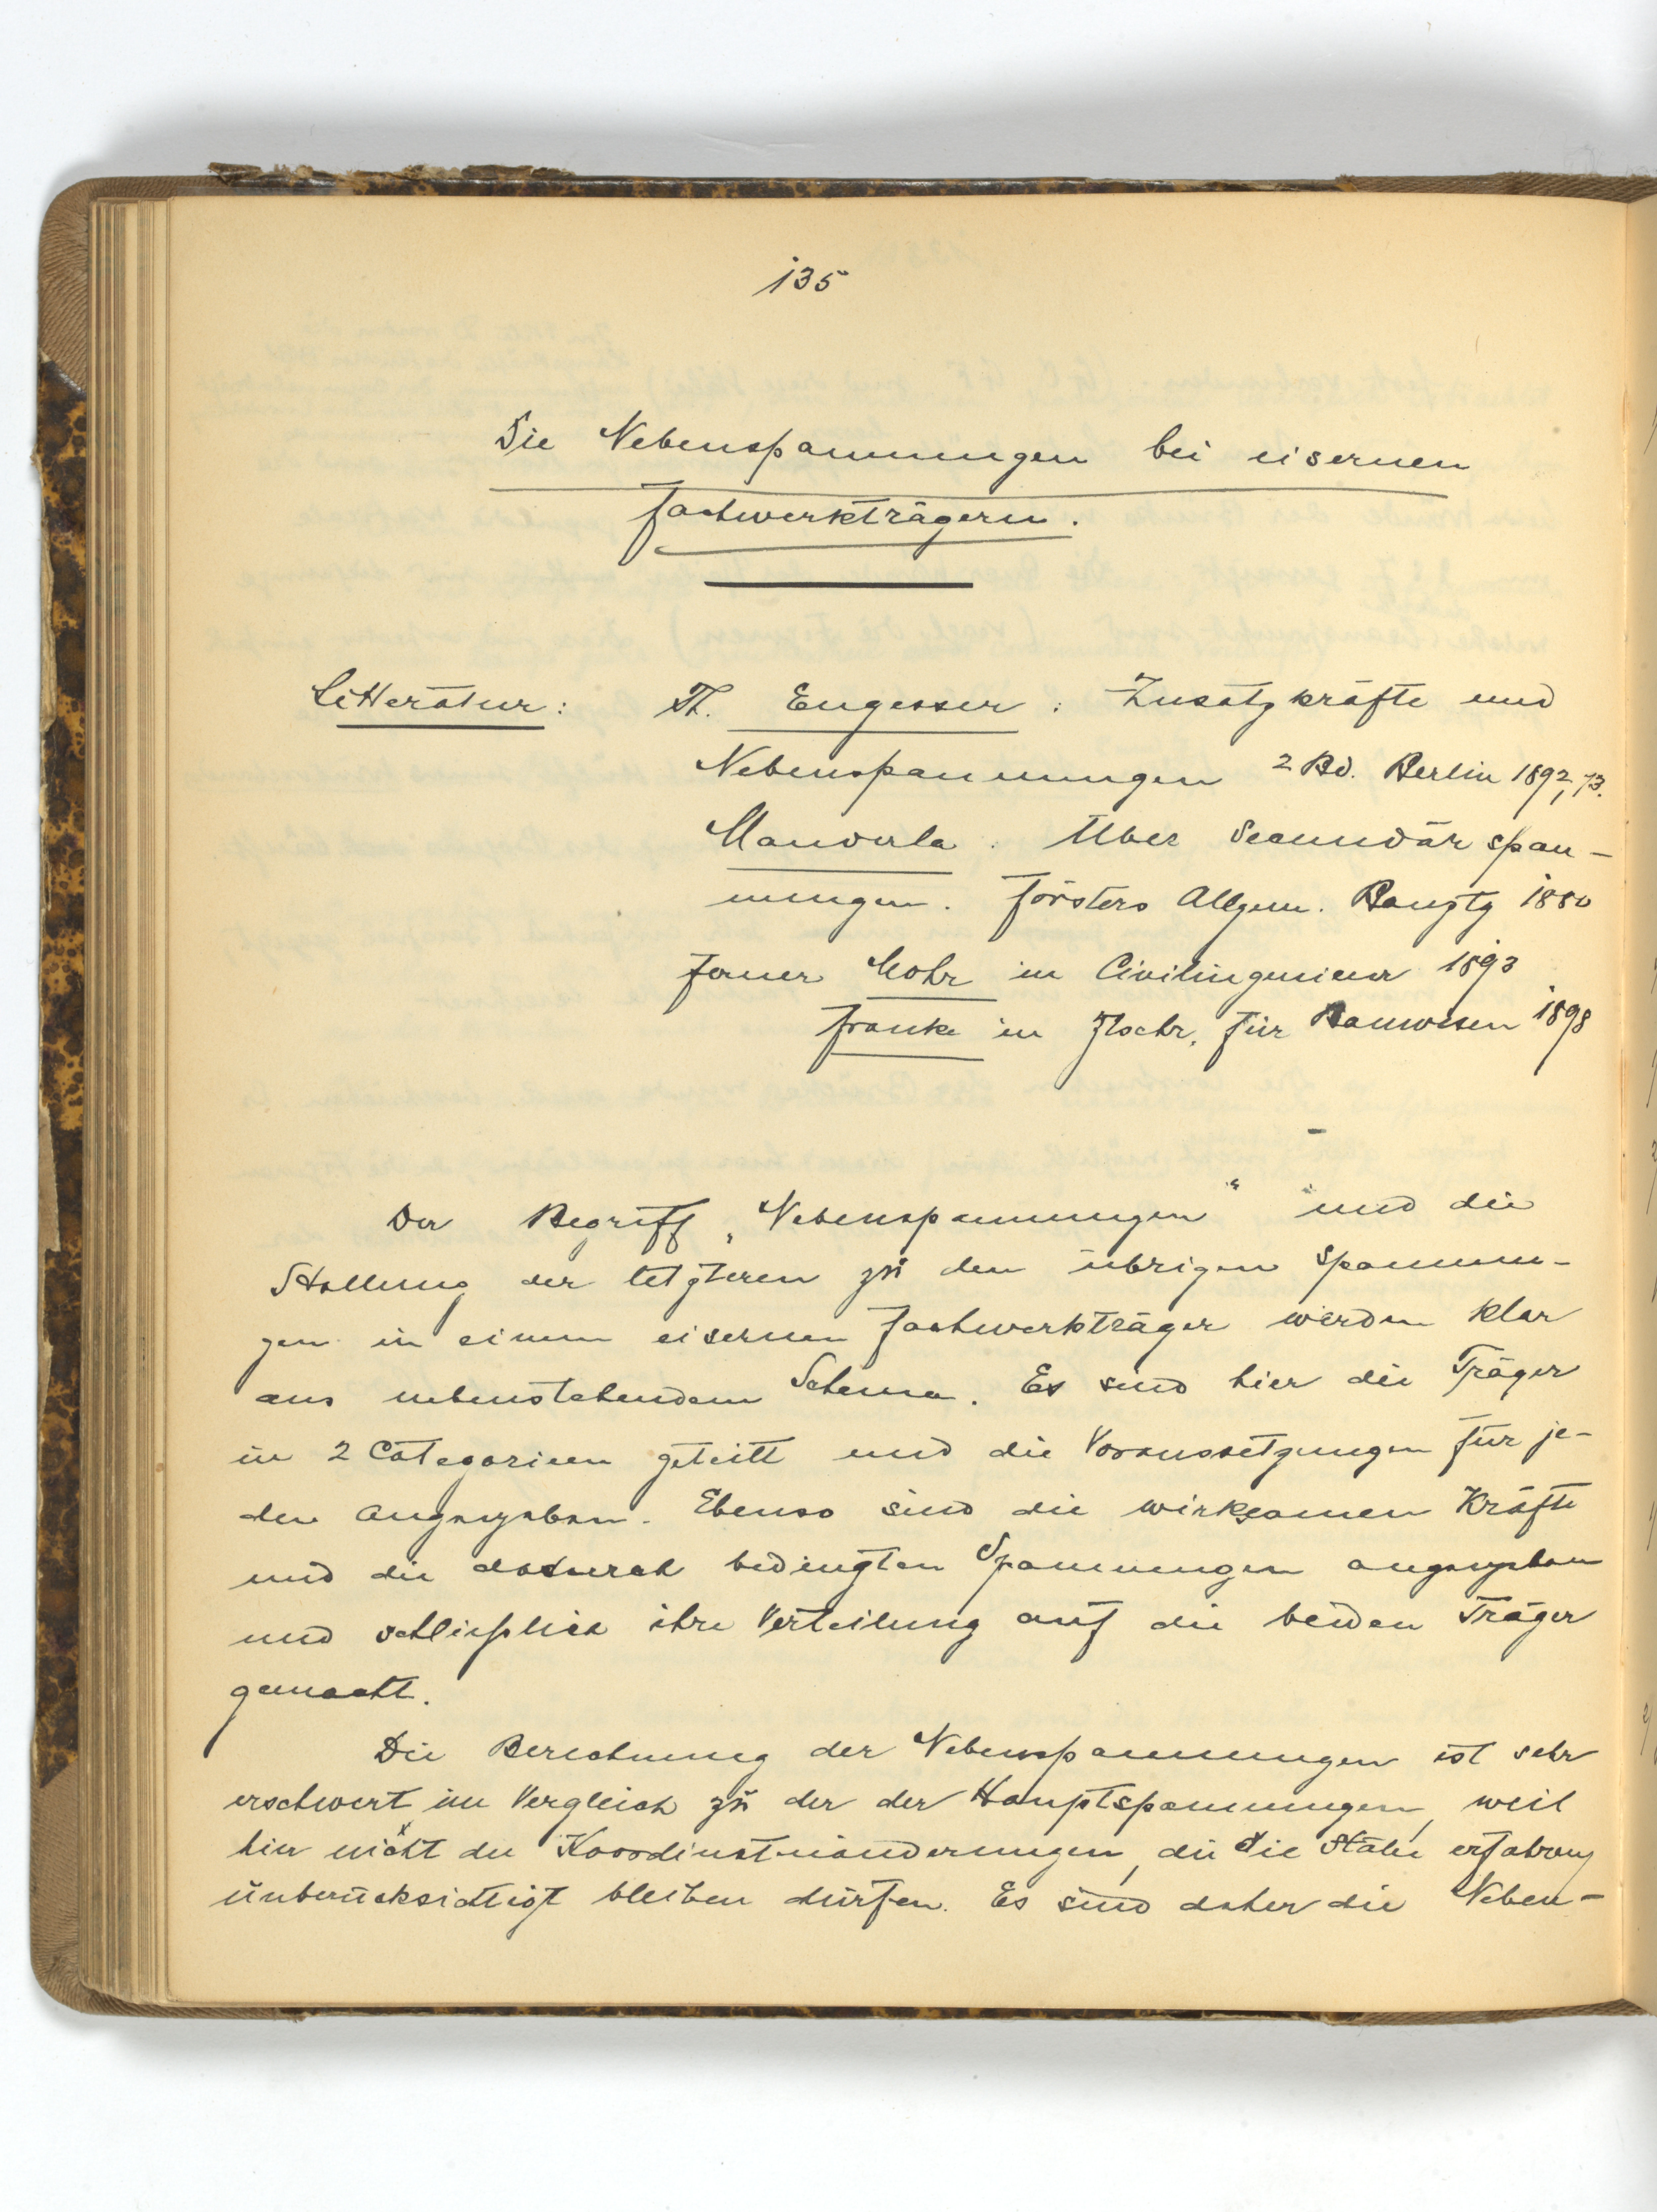 135
Die Nebenspannungen bei eisernen
Fachwerkträgern.
Litteratur: Th. Engesser: Zusatzkräfte und
Nebenspannungen 2 Bd. Berlin 1892, 93.
Manderla: Über Secundärspan-
nungen. Försters Allgem. Bauztg 1880
ferner Mohr in Civilingenieur 1893
Franke in Ztschr. für Bauwesen 1898
Der Begriff „Nebenspannungen“ und die
Stellung der letzteren zu den übrigen Spannun-
gen in einem eisernen Fachwerkträger werden klar
aus nebenstehendem Schema. Es sind hier die Träger
in 2 Categorieen geteilt und die Voraussetzungen für je-
den angegeben. Ebenso sind die wirksamen Kräfte
und die dadurch bedingten Spannungen angegeben
und schließlich ihre Verteilung auf die beiden Träger
gemacht.
Die Berechnung der Nebenspannungen ist sehr
erschwert im Vergleich zu der der Hauptspannungen, weil
hier nicht die Koordinatenänderungen, die die Stäbe erfahren
unberücksichtigt bleiben dürfen. Es sind daher die Neben-